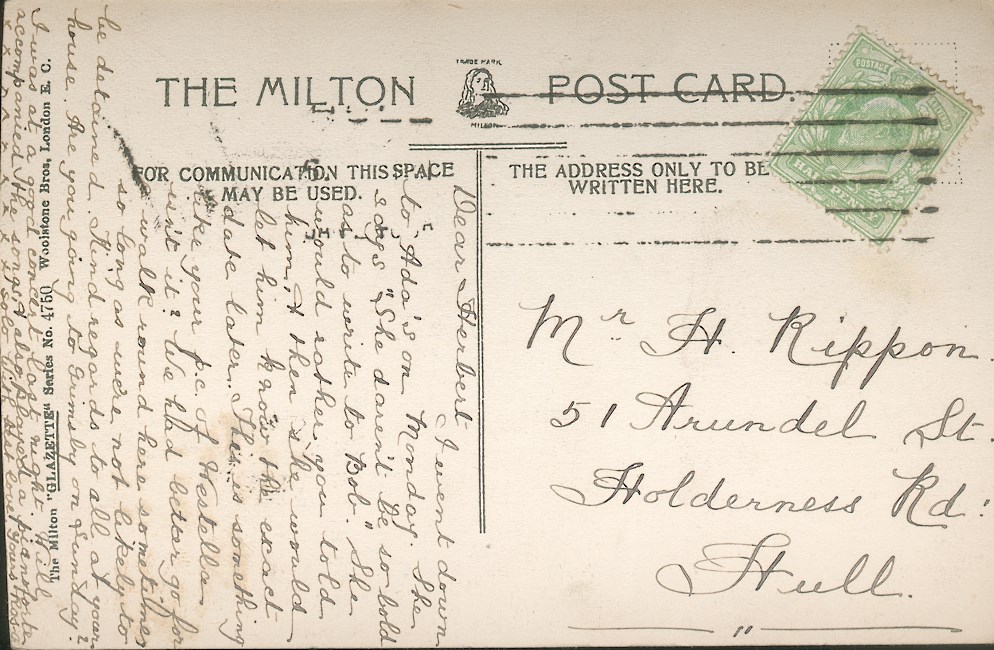 THE MILTON POST CARD.
TRADE MARK
MILTON
FOR COMMUNICATION THIS SPACE
MAY BE USED.
THE ADDRESS ONLY TO BE
WRITTEN HERE.
POSTAGE
HALF PENNY
Mr H. Rippon.
51 Arundel St.
Holderness Rd:
Hull.
Dear Herbert I went down
to Ada's on Monday. She
says "She daren't be so bold
as to write to Bob." She
would rather you told
him, & then she would
let him know the exact
date later. This is something
like your p.c. of Westella
isn't it? We had better go for
a walk round here sometimes
so long as we're not likely to
be detained. Kind regards to all at your
house. Are you going to Grimsby on Sunday?
I was at a good concert last night. Will
accompanied the songs & also played a pianoforte
solo
The Milton "GLAZETTE" Series No. 4750 Woolstone Bros, London E. C.